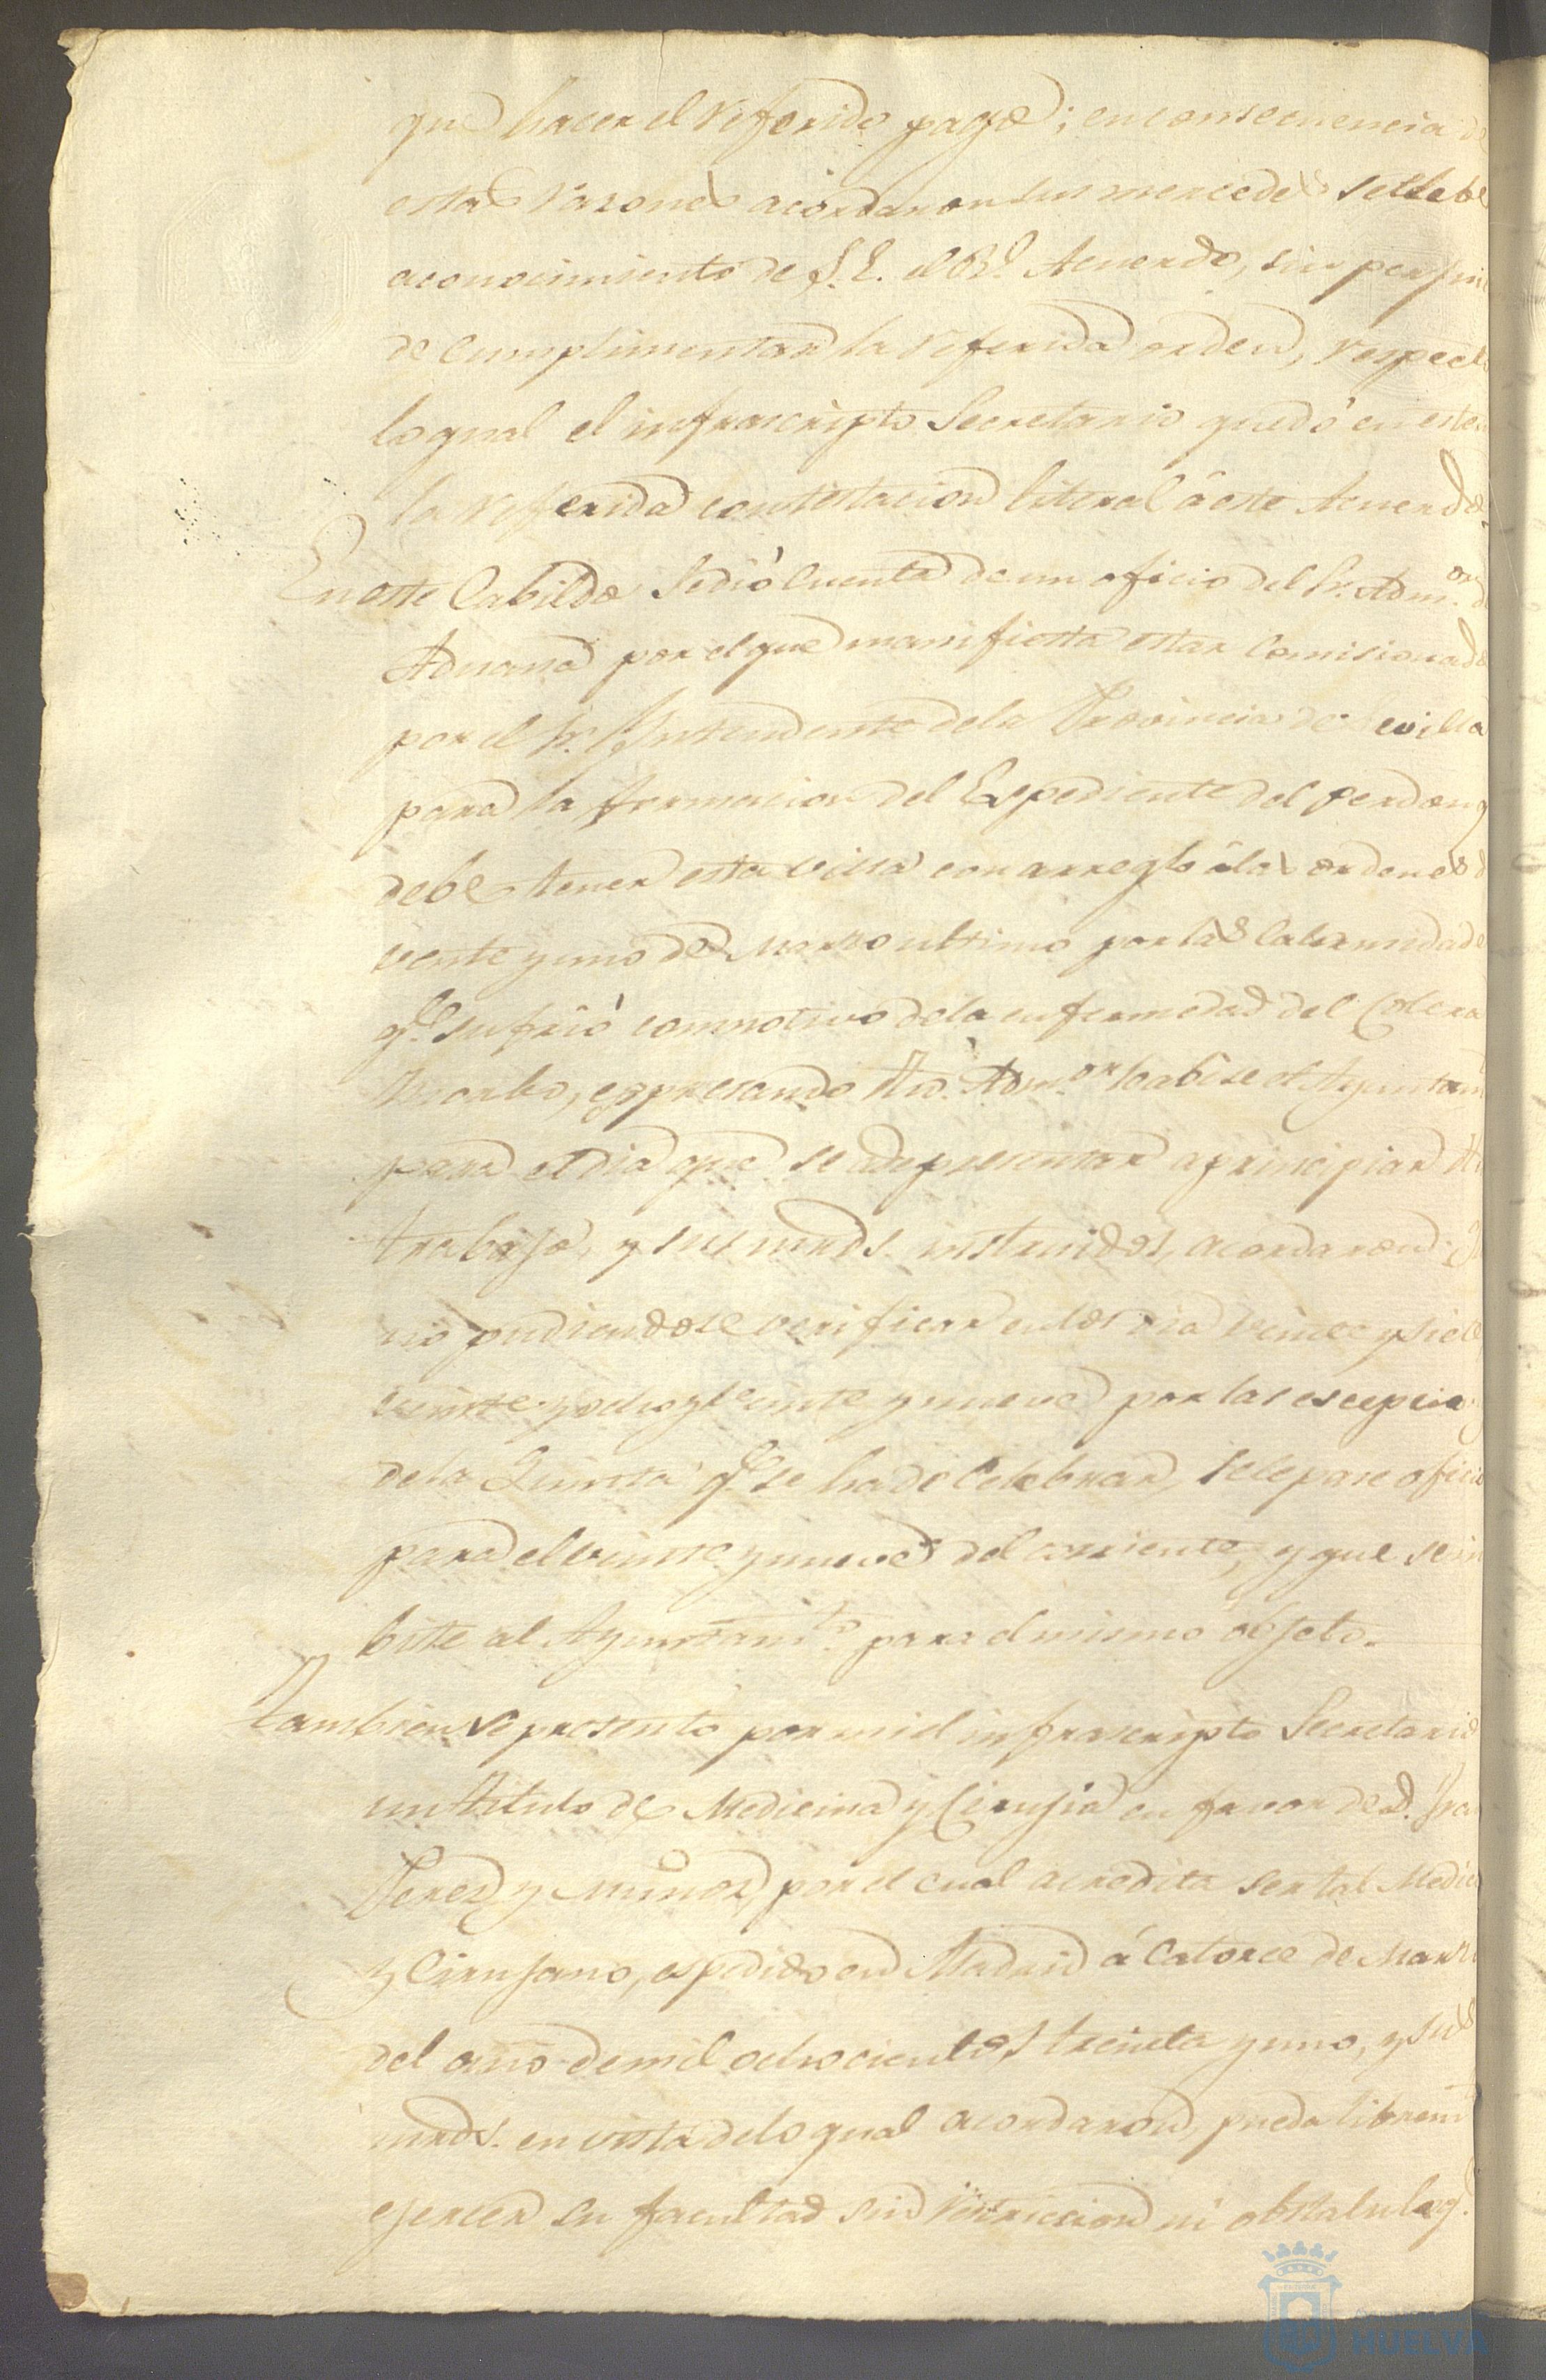 que hacer el referido pago; en consecuencia de
estas razones acordaron sus mercedes se llebe
a conocimiento de S.E. el Rl. Acuerdo, sin perjui
de cumplimentar la referida orden, respect
lo qual el infrascripto Secretario quedó en este
la referida contestacion literal á este Acuerdo
En este Cabildo se dió cuenta de un oficio del Sr. Admor. de
Aduana por el que manifiesta estar Comisionado
por el Sr. Intendente de la Provincia de Sevilla
para la formacion del Espediente del perdon q
debe tener esta villa con arreglo á las ordenes d
veinte y uno de Marzo ultimo por las Calamidade
qe. sufrió con motivo de la enfermedad del Colera
Morbo, espresando dho. Admor. habise el Ayuntam
para el dia que se ade presentar a principiar
trabajo, y sus mrds. instruidos, acordaron: Q
no pudiendose verificar en los dia veinte y siete
veinte y ocho y veinte y nueve por las escepcio
de la Quinta qe. se ha de Celebrar, se le pase oficio
para el veinte y nueve del corriente, y que se in
bite al Ayuntamto. para el mismo objeto.
Tambien se presentó por mi el infrascripto Secretario
un titulo de Medicina y Cirujia en favor de D. Fran
Perez y Muñoz, por el cual acredita ser tal Medico
y Cirujano, espedido en Madrid á Catorce de Marzo
del año de mil ochocientos treinta y uno, y sus
mrds. en vista de lo qual acordaron, pueda librem
ejercer su facultad sin restriccion ni obstalulo q.
HUELVA